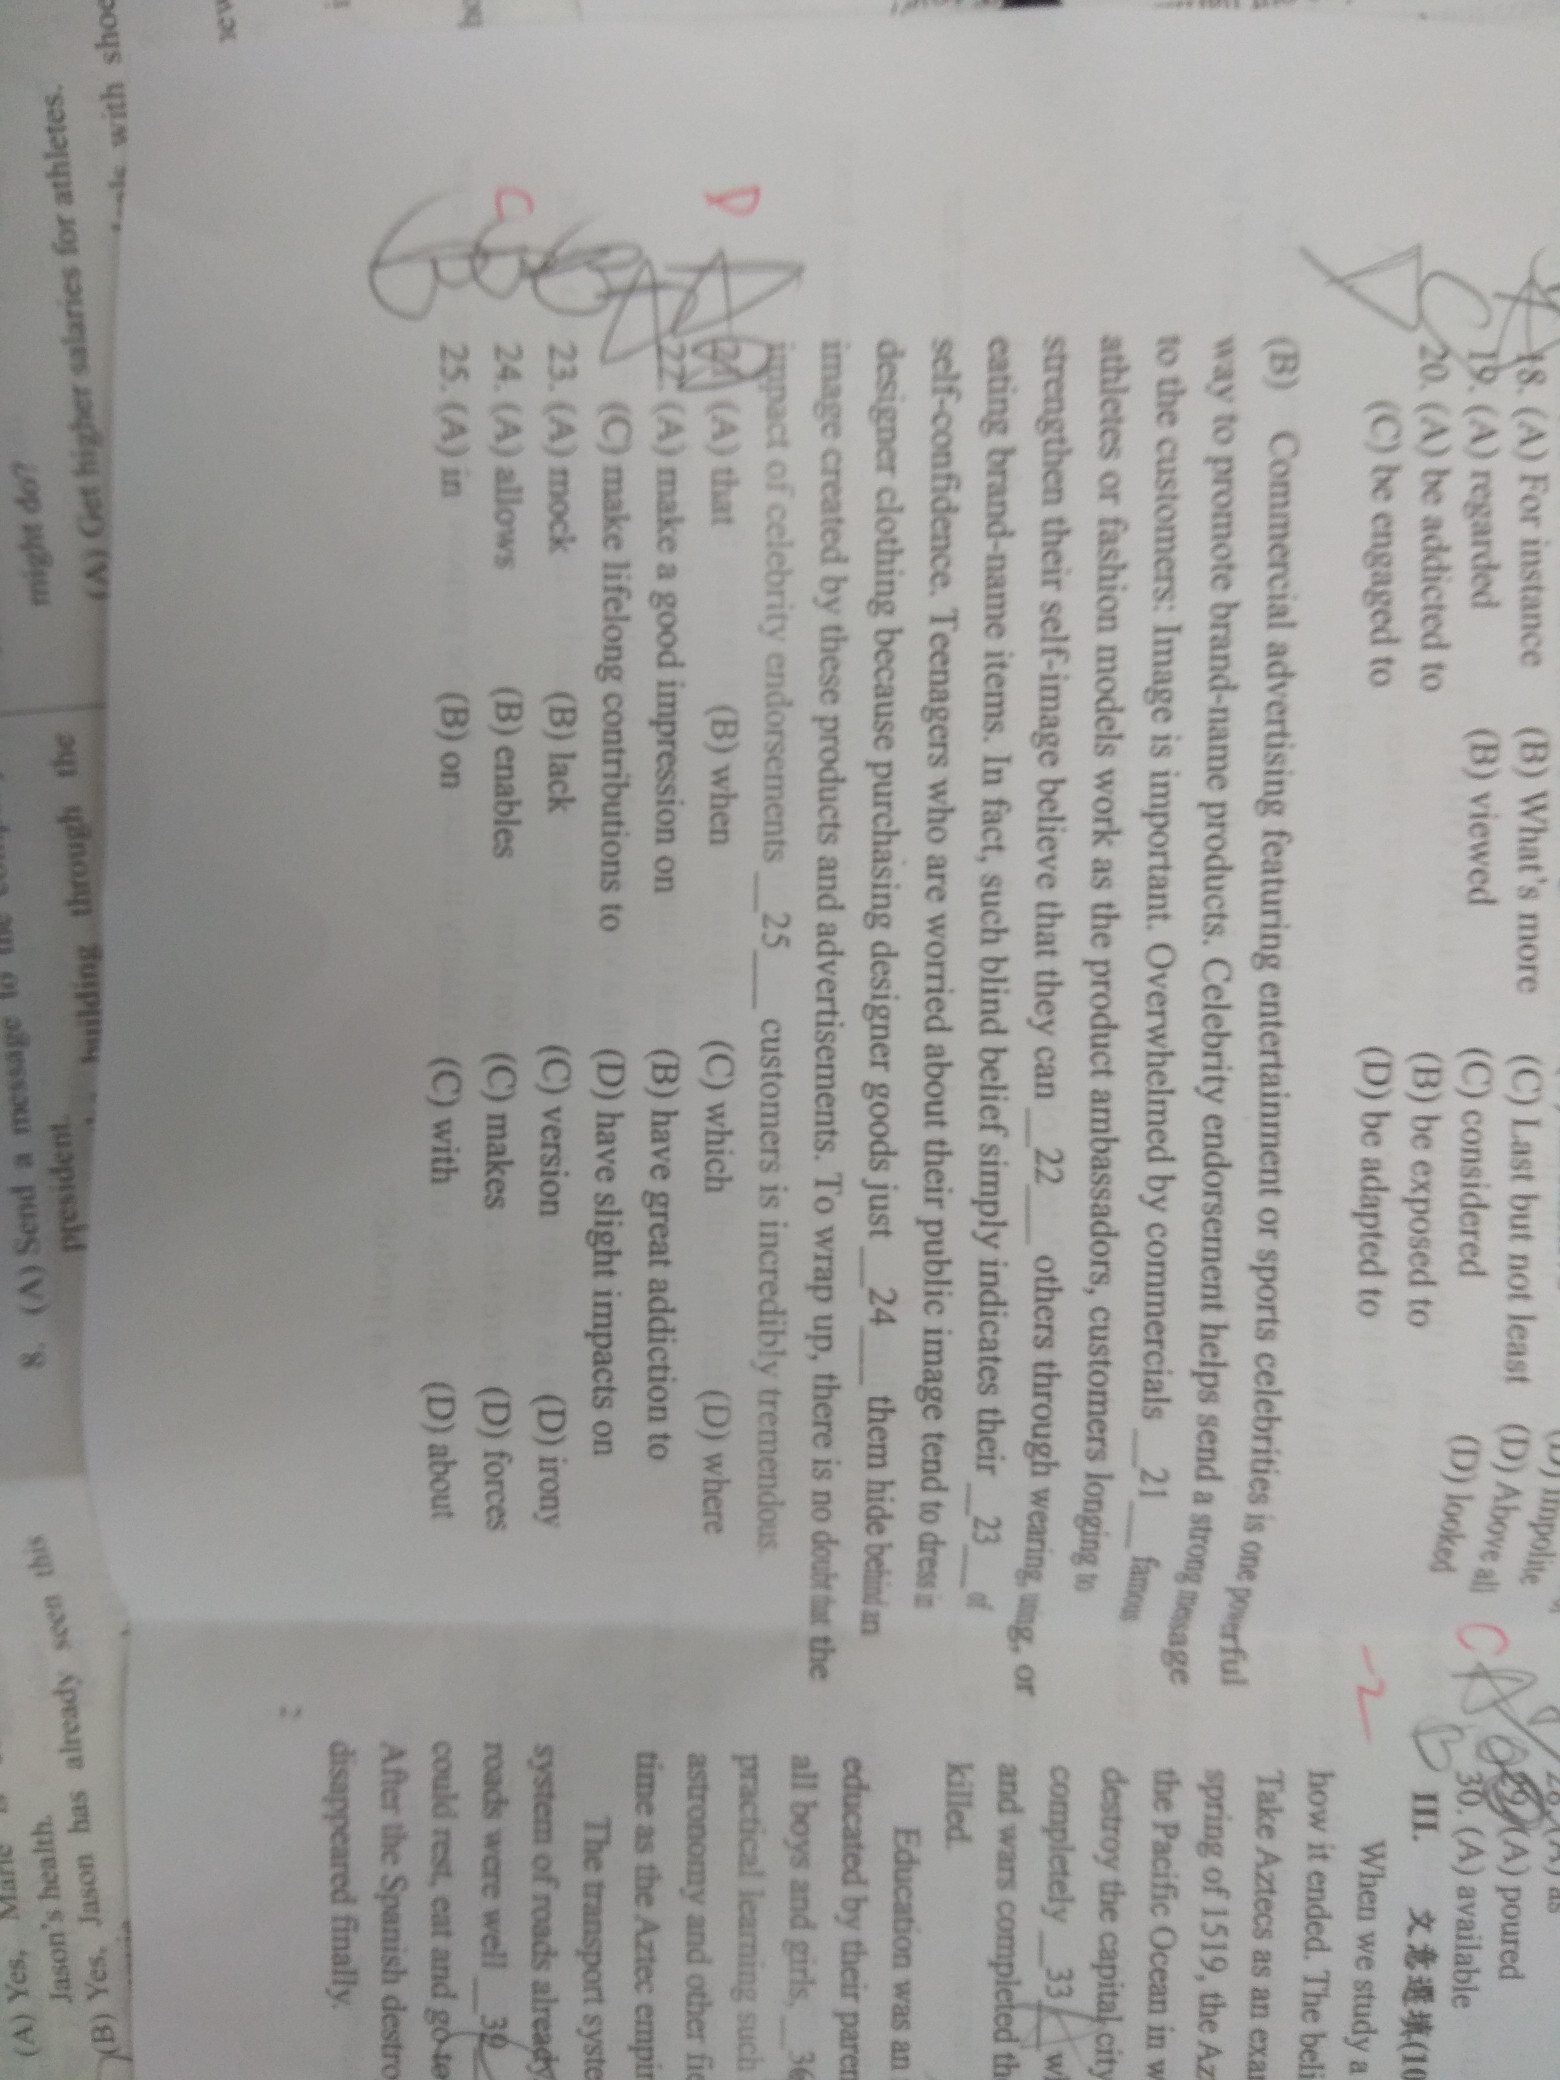 18. (A) For instance (B) What's more (C) Last but not least (D) Above all
19. (A) regarded (B) viewed (C) considered (D) looked
20. (A) be addicted to (B) be exposed to
(C) be engaged to (D) be adapted to
(B) Commercial advertising featuring entertainment or sports celebrities is one powerful
way to promote brand-name products. Celebrity endorsement helps send a strong message
to the customers: Image is important. Overwhelmed by commercials __21__ famous
athletes or fashion models work as the product ambassadors, customers longing to
strengthen their self-image believe that they can __22__ others through wearing, using, or
eating brand-name items. In fact, such blind belief simply indicates their __23__ of
self-confidence. Teenagers who are worried about their public image tend to dress in
designer clothing because purchasing designer goods just __24__ them hide behind an
image created by these products and advertisements. To wrap up, there is no doubt that the
impact of celebrity endorsements __25__ customers is incredibly tremendous.
D
21. (A) that (B) when (C) which (D) where
22. (A) make a good impression on (B) have great addiction to
(C) make lifelong contributions to (D) have slight impacts on
23. (A) mock (B) lack (C) version (D) irony
C B 24. (A) allows (B) enables (C) makes (D) forces
B 25. (A) in (B) on (C) with (D) about
C
29. (A) poured
B 30. (A) available
-2
III. 文意選填(10
When we study a
how it ended. The beli
Take Aztecs as an exa
spring of 1519, the Az
the Pacific Ocean in w
destroy the capital city
completely __33__ wh
and wars completed th
killed.
Education was an
educated by their paren
all boys and girls, __36
practical learning such
astronomy and other fie
time as the Aztec empir
The transport syste
system of roads already
roads were well __39
could rest, eat and go to
After the Spanish destro
disappeared finally.
2
(A) Get higher salaries for athletes.
might do?
building through the
pesident.
8. (A) Send a message to
(B) Yes, Jason has already seen this
Jason's health.
(A) Yes,